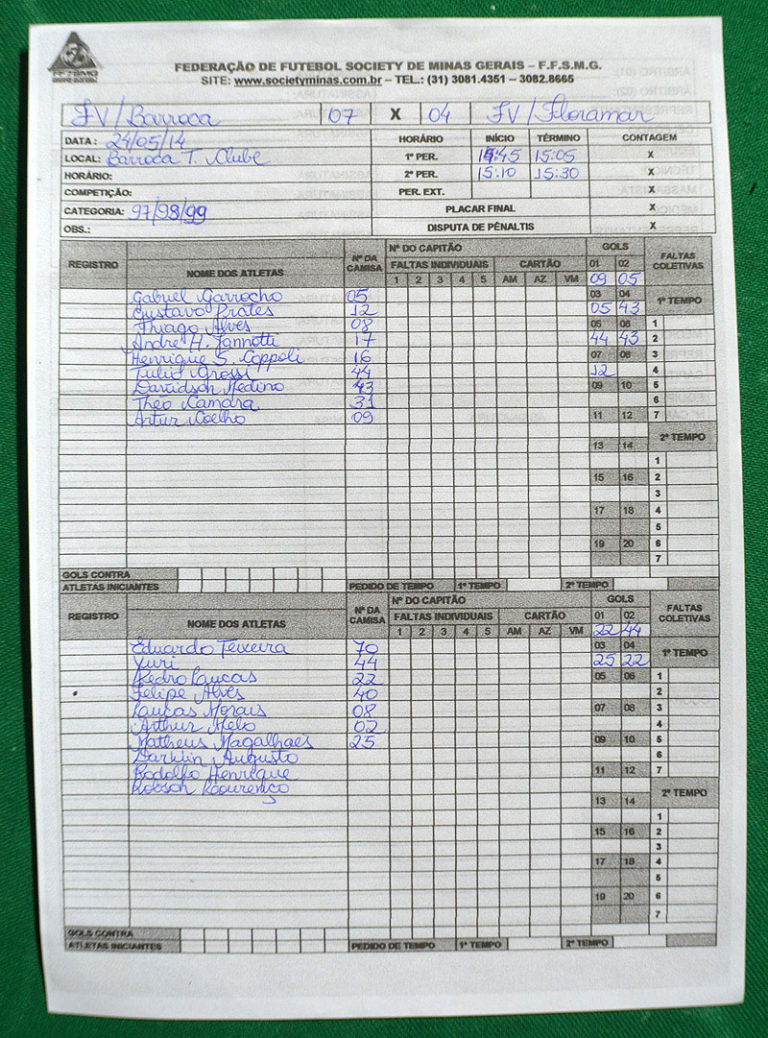 FEDERAÇÃO DE FUTEBOL SOCIETY DE MINAS GERAIS – F.F.S.M.G.
SITE: www.societyminas.com.br – TEL.: (31) 3081.4351 – 3082.8665
FV/Barroca 07 X 04 FV/Floramar
DATA: 24/05/14 HORÁRIO INÍCIO TÉRMINO CONTAGEM
LOCAL: Barroca T. Clube 1º PER. 14:45 15:05 X
HORÁRIO: 2º PER. 15:10 15:30 X
COMPETIÇÃO: PER. EXT. X
CATEGORIA: 97/98/99 PLACAR FINAL X
OBS.: DISPUTA DE PÊNALTIS X
REGISTRO NOME DOS ATLETAS Nº DA CAMISA Nº DO CAPITÃO GOLS FALTAS COLETIVAS
FALTAS INDIVIDUAIS CARTÃO 01 02
1 2 3 4 5 AM AZ VM 09 05
Gabriel Garrocho 05 03 04 1º TEMPO
Gustavo Prates 12 05 43
Thiago Alves 08 05 06 1
André H. Iannotti 17 44 43 2
Henrique S. Coppoli 16 07 08 3
Tulio Grossi 44 12 4
Davidson Medino 43 09 10 5
Théo Camara 31 6
Artur Coelho 09 11 12 7
13 14 2º TEMPO
1
15 16 2
3
17 18 4
5
19 20 6
7
GOLS CONTRA
ATLETAS INICIANTES PEDIDO DE TEMPO 1º TEMPO 2º TEMPO
REGISTRO NOME DOS ATLETAS Nº DA CAMISA Nº DO CAPITÃO GOLS FALTAS COLETIVAS
FALTAS INDIVIDUAIS CARTÃO 01 02
1 2 3 4 5 AM AZ VM 22 44
Eduardo Teixeira 70 03 04 1º TEMPO
Yuri 44 25 22
Pedro Lucas 22 05 06 1
Felipe Alves 40 2
Lucas Morais 08 07 08 3
Arthur Melo 02 4
Matheus Magalhaes 25 09 10 5
Augusto 6
Rodolfo Henrique 11 12 7
Robson Lourenco 2º TEMPO
13 14
1
15 16 2
3
17 18 4
5
19 20 6
7
GOLS CONTRA
ATLETAS INICIANTES PEDIDO DE TEMPO 1º TEMPO 2º TEMPO